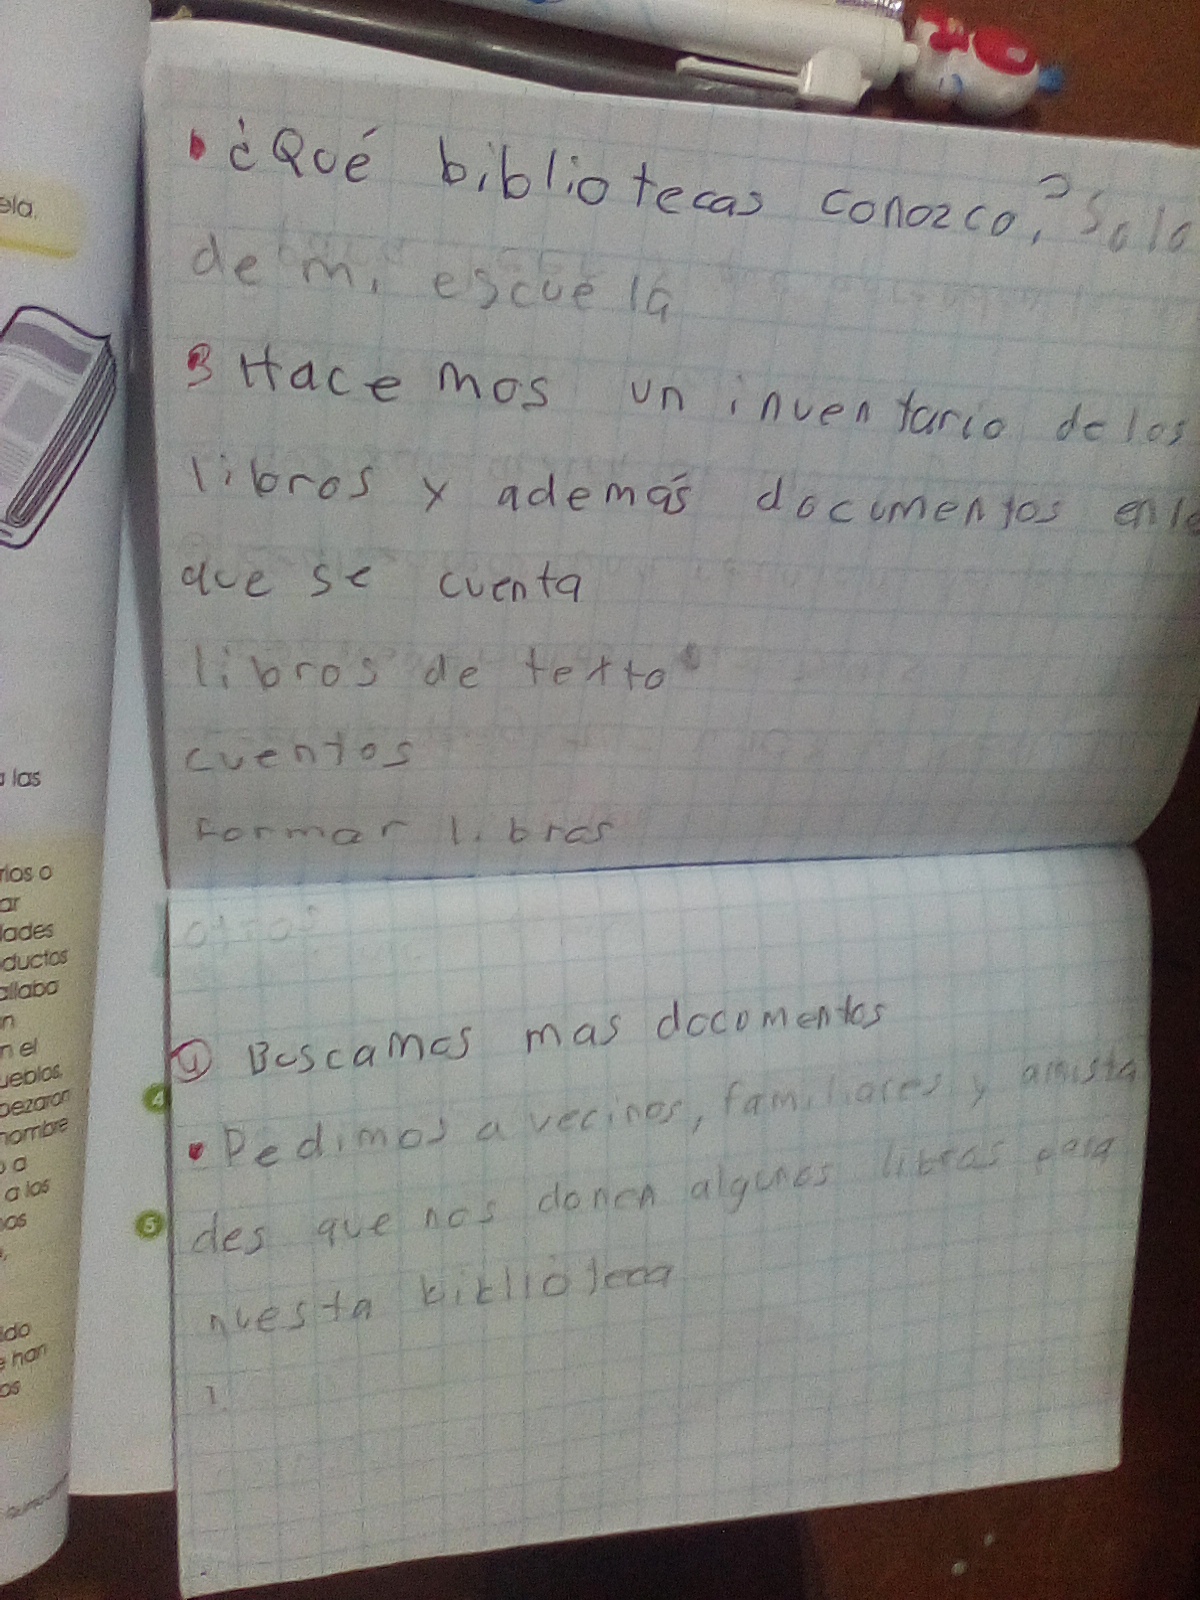 ela.
a las
rlos o
ar
dades
ductos
allaba
n
n el
ueblos,
pezaron
nombre
o a
a los
nos
ldo
e han
os
4
5
• ¿Qué bibliotecas conozco? Solo
de mi escuela
3 Hacemos un inventario de los
libros y además documentos en lo
que se cuenta
libros de texto
cuentos
Formar libros
otros
4 Buscamos mas documentos
• Pedimos a vecinos, familiares y amista
des que nos donen algunos libros para
nuesta biblioteca
1.